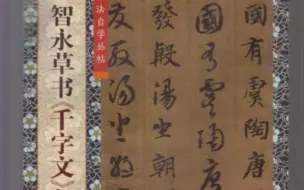 智永草书《千字文》
法自学丛帖
國有虞陶唐
國有虞陶唐
發殷湯坐朝
發殷湯坐朝